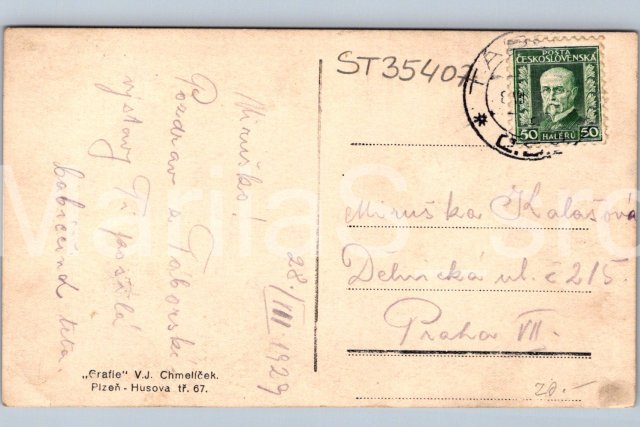 ST35407
TÁBOR
POŠTA
ČESKOSLOVENSKÁ
50 HALÉŘŮ 50
Miruško!
Pozdrav z Táborské
výstavy Ti posílá
babiččina teta.
28/VIII 1929
Miruška Kalašová
Dělnická ul. č 215.
Praha VII.
20.-
„Grafie" V.J. Chmelíček.
Plzeň - Husova tř. 67.